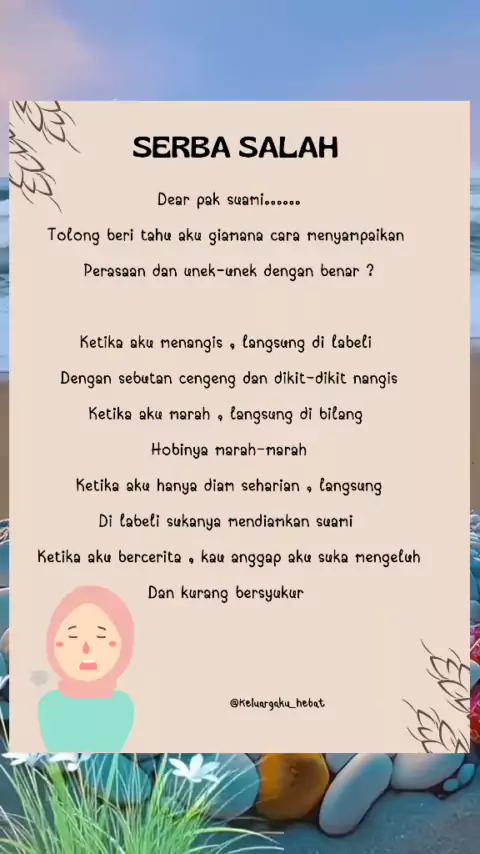 SERBA SALAH
Dear pak suami......
Tolong beri tahu aku giamana cara menyampaikan
Perasaan dan unek-unek dengan benar ?
Ketika aku menangis , langsung di labeli
Dengan sebutan cengeng dan dikit-dikit nangis
Ketika aku marah , langsung di bilang
Hobinya marah-marah
Ketika aku hanya diam seharian , langsung
Di labeli sukanya mendiamkan suami
Ketika aku bercerita , kau anggap aku suka mengeluh
Dan kurang bersyukur
@Keluargaku_hebat